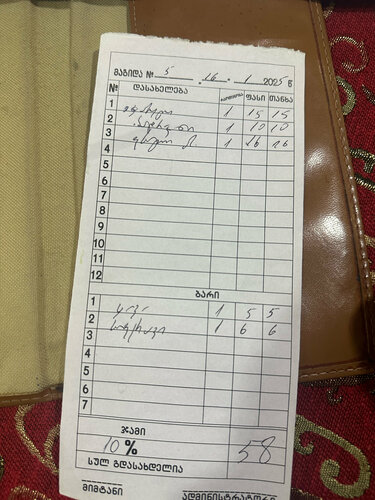 მაგიდა № 5 . 16 . 1 2025 წ
№ დასახელება რაოდენობა ფასი თანხა
1 1 15 15
2 1 10 10
3 1 16 16
4
5
6
7
8
9
10
11
12
ბარი
1 1 5 5
2 1 6 6
3
4
5
6
7
ჯამი
10 % 58
სულ გდასახდელია
მიმტანი ადმინისტრატორი